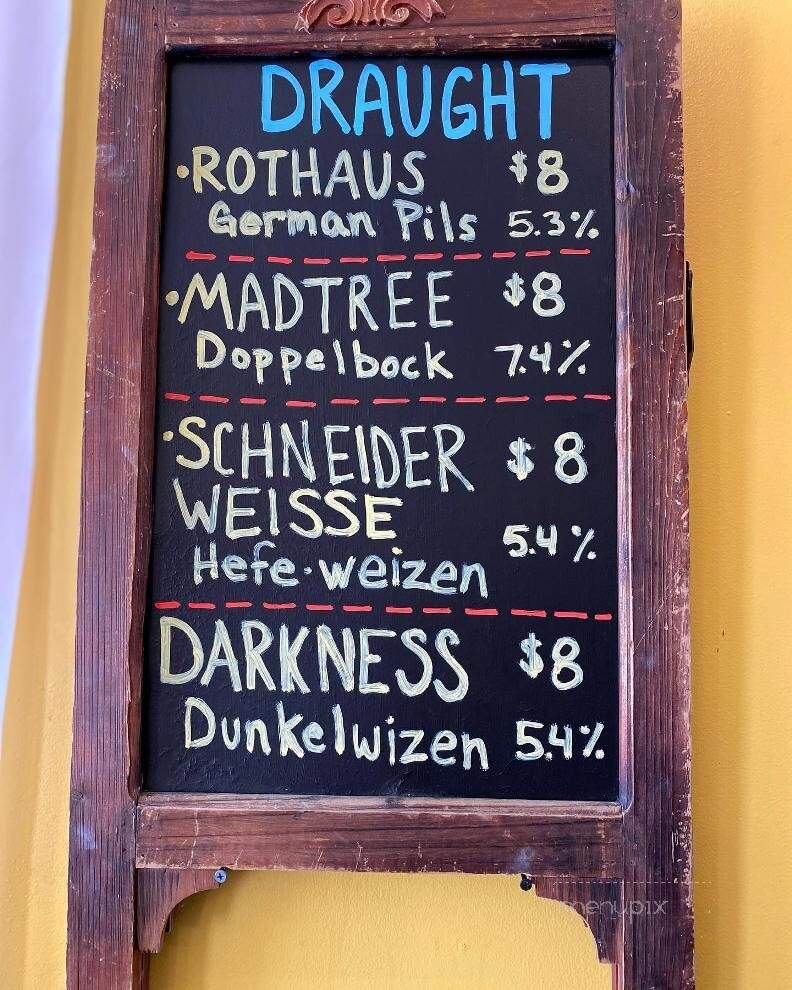 DRAUGHT
·ROTHAUS $8
German Pils 5.3%
·MADTREE $8
Doppelbock 7.4%
·SCHNEIDER $8
WEISSE
5.4%
Hefe-weizen
DARKNESS $8
Dunkelwizen 5.4%
menupix